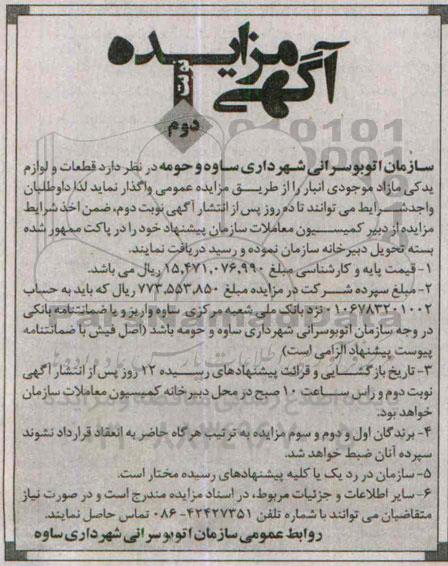 آگهی مزایده
نوبت
دوم
سازمان اتوبوسرانی شهرداری ساوه و حومه در نظر دارد قطعات و لوازم
یدکی مازاد موجودی انبار را از طریق مزایده عمومی واگذار نماید لذا داوطلبان
واجد شرایط می توانند تا ده روز پس از انتشار آگهی نوبت دوم، ضمن اخذ شرایط
مزایده از دبیر کمیسیون معاملات سازمان پیشنهاد خود را در پاکت ممهور شده
بسته تحویل دبیرخانه سازمان نموده و رسید دریافت نمایند.
۱- قیمت پایه و کارشناسی مبلغ ۱۵,۴۷۱,۰۷۶,۹۹۰ ریال می باشد.
۲- مبلغ سپرده شرکت در مزایده مبلغ ۷۷۳,۵۵۳,۸۵۰ ریال که باید به حساب
نزد بانک ملی شعبه مرکزی ساوه واریز و یا ضمانتنامه بانکی
در وجه سازمان اتوبوسرانی شهرداری ساوه و حومه باشد (اصل فیش یا ضمانتنامه
پیوست پیشنهاد الزامی است)
۳- تاریخ بازگشایی و قرائت پیشنهادهای رسیده ۱۲ روز پس از انتشار آگهی
نوبت دوم و راس ساعت ۱۰ صبح در محل دبیرخانه کمیسیون معاملات سازمان
خواهد بود.
۴- برندگان اول و دوم و سوم مزایده به ترتیب هر گاه حاضر به انعقاد قرارداد نشوند
سپرده آنان ضبط خواهد شد.
۵- سازمان در رد یک یا کلیه پیشنهادهای رسیده مختار است.
۶- سایر اطلاعات و جزئیات مربوط، در اسناد مزایده مندرج است و در صورت نیاز
متقاضیان می توانند با شماره تلفن ۴۲۴۲۷۳۵۱-۰۸۶ تماس حاصل نمایند.
روابط عمومی سازمان اتوبوسرانی شهرداری ساوه